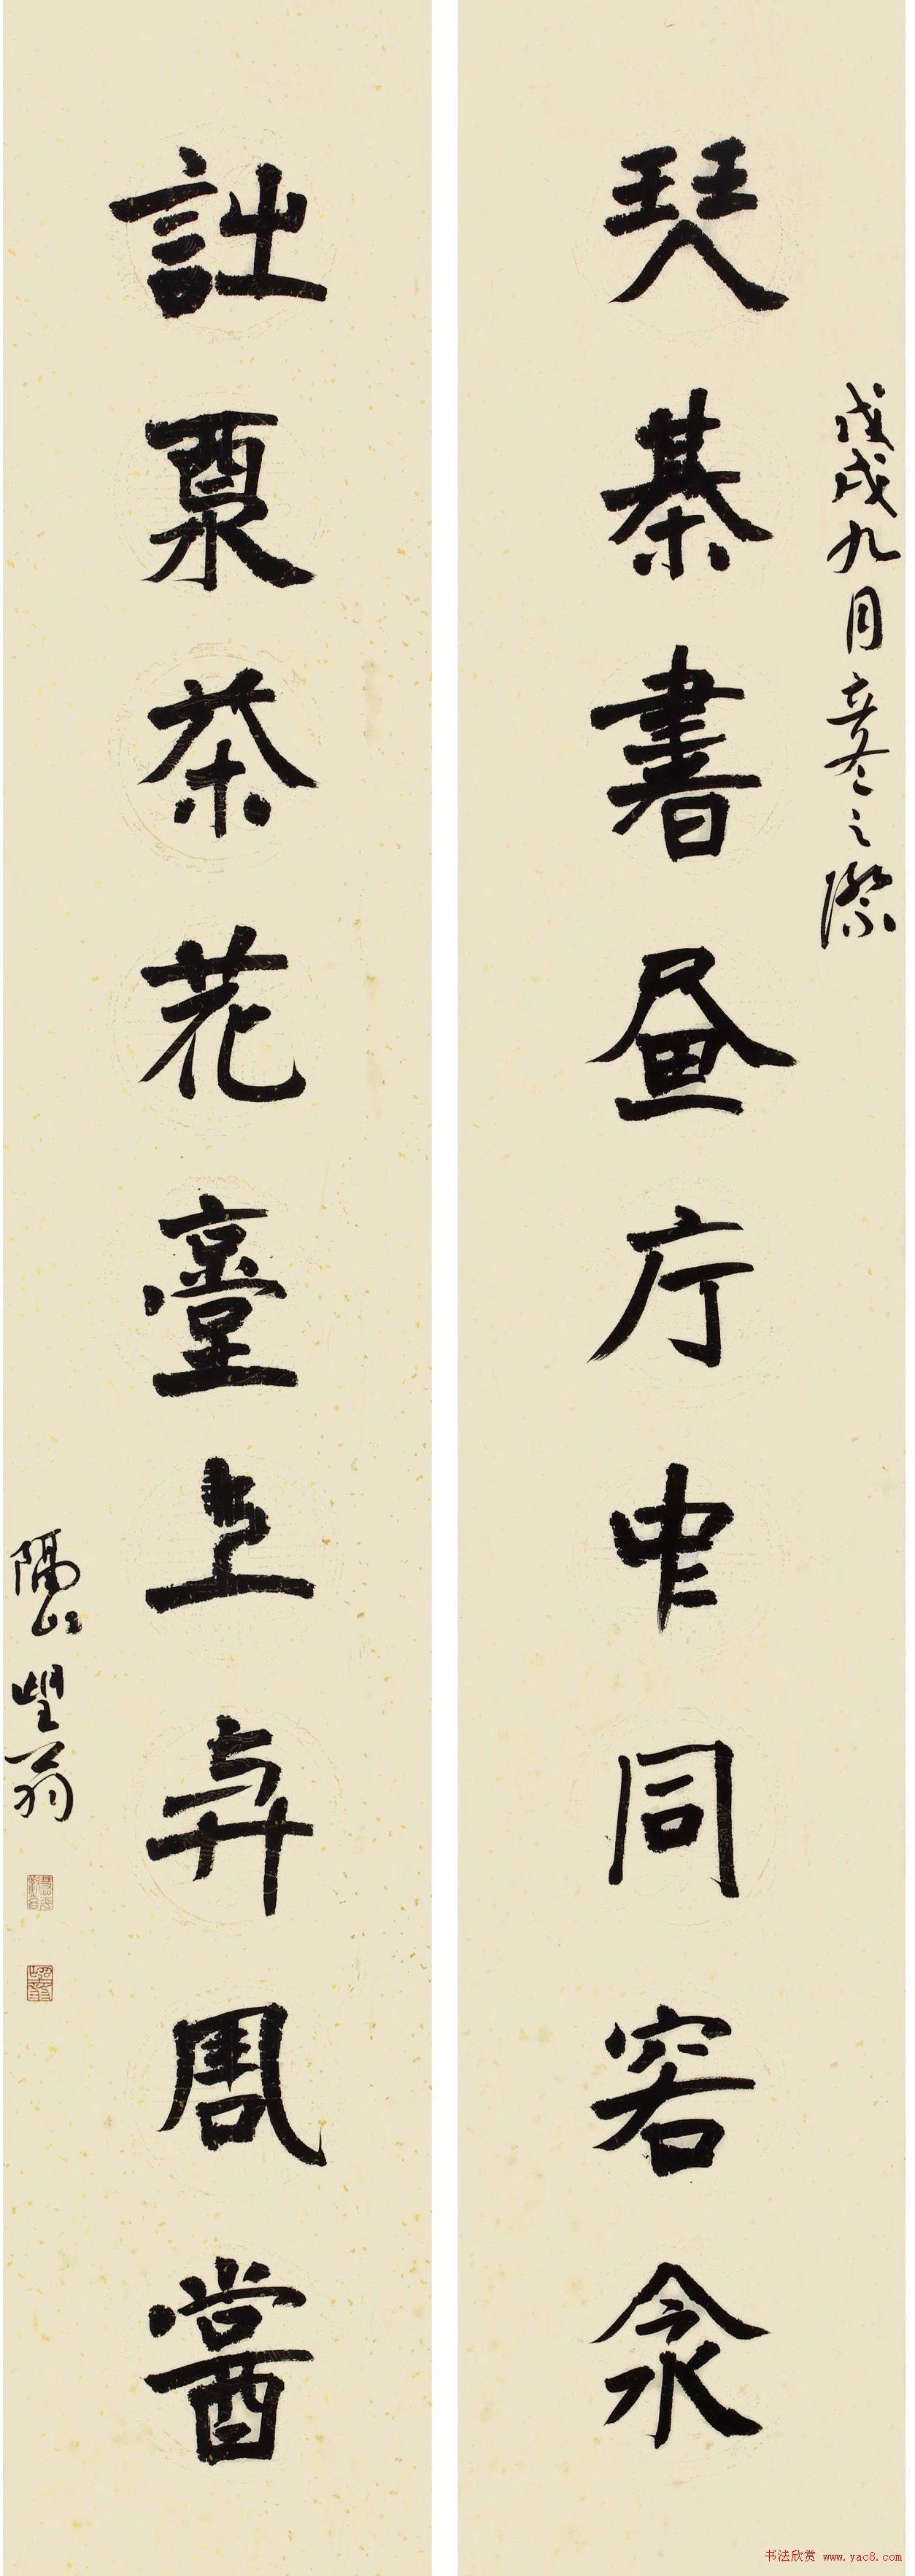 戊戌九月立冬之際
琴棊書畫庁中同客㱃
詩酒茶花臺上与周嘗
隔山望翁
书法欣赏 www.yac8.com